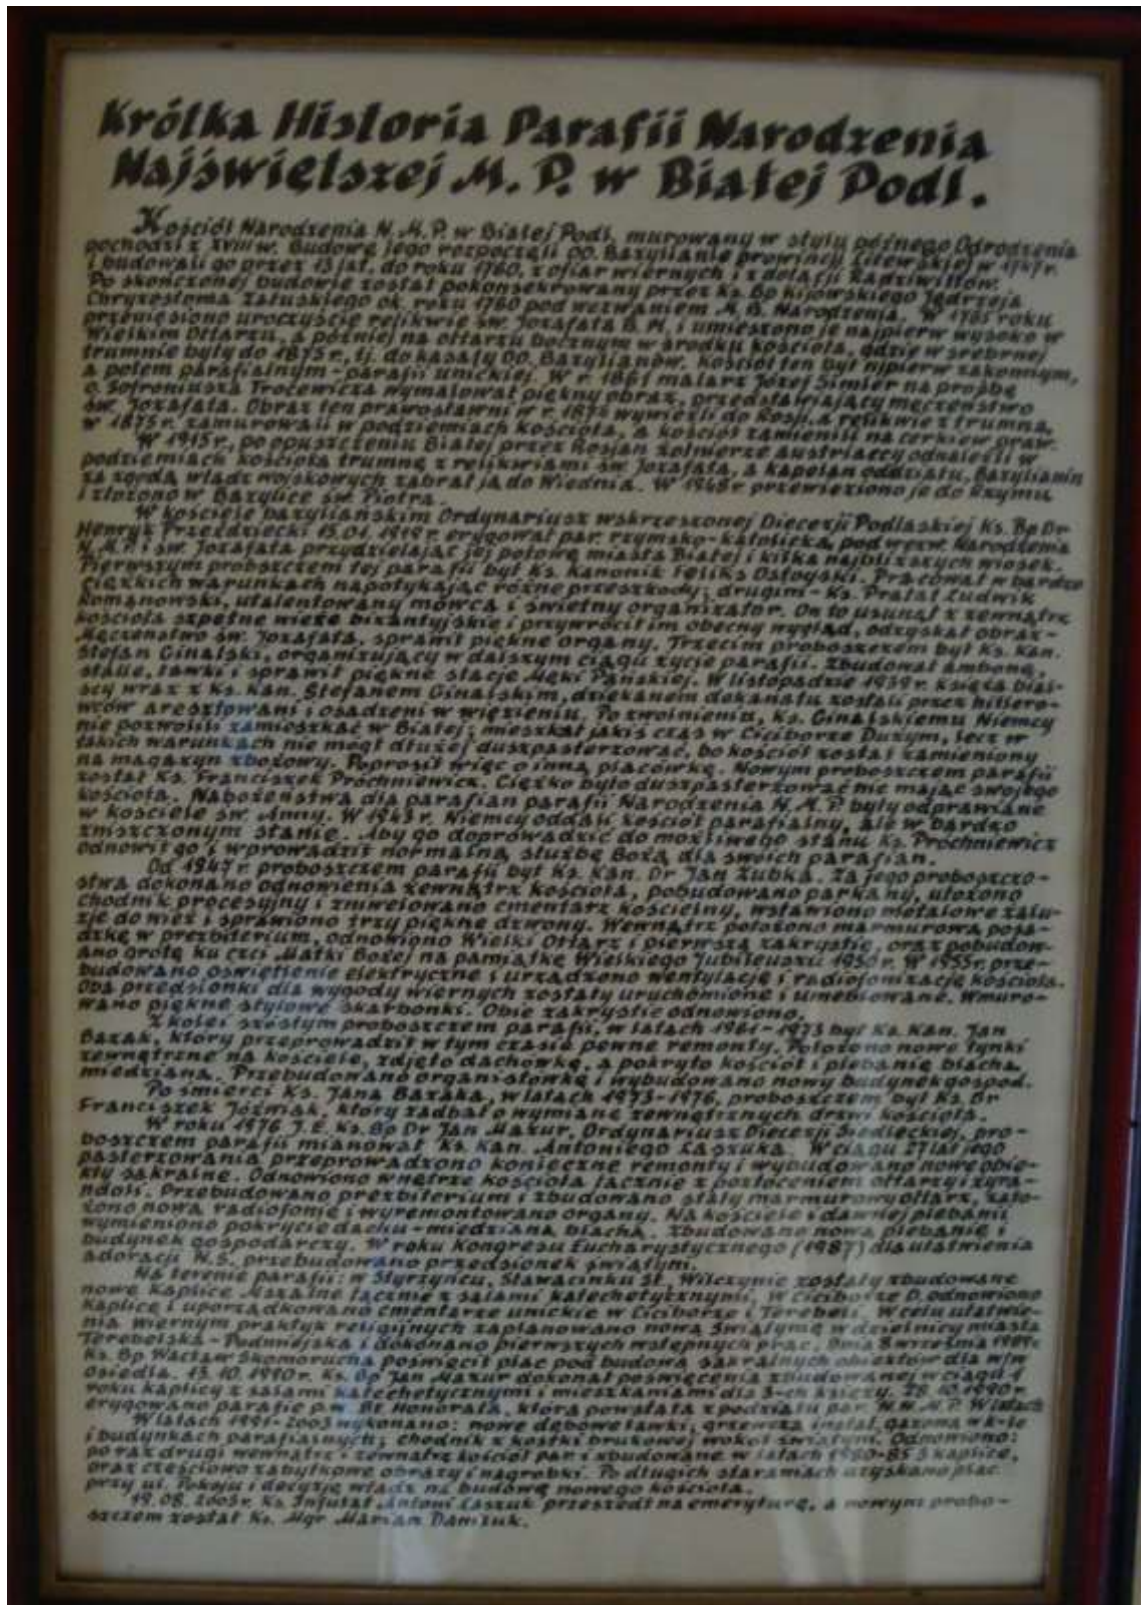 Krótka Historia Parafii Narodzenia
Najświętszej M. P. w Białej Podl.
Kościół Narodzenia N. M. P. w Białej Podl. murowany w stylu późnego Odrodzenia
pochodzi z XVIII w. Budowę jego rozpoczęli OO. Bazylianie prowincji Litewskiej w 1747 r.
i budowali go przez 13 lat, do roku 1760, z ofiar wiernych i z dotacji Radziwiłłów.
Po skończonej budowie został pokonsekrowany przez Ks. Bp Kijowskiego Jędrzeja
Chryzostoma Załuskiego ok. roku 1760 pod wezwaniem M. B. Narodzenia. W 1765 roku
przeniesiono uroczyście relikwie św. Jozafata B. M. i umieszczono je najpierw wysoko w
Wielkim Ołtarzu, a później na ołtarzu bocznym w środku kościoła, gdzie w srebrnej
trumnie były do 1873 r., tj. do kasaty OO. Bazylianów. Kościół ten był najpierw zakonnym,
a potem parafialnym - parafii unickiej. W r. 1861 malarz Józef Simler na prośbę
o. Sofroniusza Trocewicza wymalował piękny obraz, przedstawiający męczeństwo
św. Jozafata. Obraz ten prawosławni w r. 1874 wywieźli do Rosji, a relikwie z trumną,
w 1875 r. zamurowali w podziemiach kościoła, a kościół zamienili na cerkiew praw.
W 1915 r., po opuszczeniu Białej przez Rosjan żołnierze austriaccy odnaleźli w
podziemiach kościoła trumnę z relikwiami św. Jozafata, a kapelan oddziału, Bazylianin
za zgodą władz wojskowych zabrał ją do Wiednia. W 1948 r. przewieziono je do Rzymu
i złożono w Bazylice św. Piotra.
W kościele bazyliańskim Ordynariusz wskrzeszonej Diecezji Podlaskiej Ks. Bp Dr
Henryk Przeździecki 15.01.1919 r. erygował par. rzymsko-katolicką, pod wezw. Narodzenia
N. M. P. i św. Jozafata przydzielając jej połowę miasta Białej i kilka najbliższych wiosek.
Pierwszym proboszczem tej parafii był Ks. Kanonik Feliks Ostoyski. Pracował w bardzo
ciężkich warunkach napotykając różne przeszkody; drugim - Ks. Prałat Ludwik
Romanowski, utalentowany mówca i świetny organizator. On to usunął z zewnątrz
kościoła szpetne wieże bizantyjskie i przywrócił im obecny wygląd, odzyskał obraz -
Męczeństwo św. Jozafata, sprawił piękne organy. Trzecim proboszczem był Ks. Kan.
Stefan Ginalski, organizujący w dalszym ciągu życie parafii. Zbudował ambonę,
stalle, ławki i sprawił piękne stacje Męki Pańskiej. W listopadzie 1939 r. księża bial-
scy wraz z Ks. Kan. Stefanem Ginalskim, dziekanem dekanatu zostali przez hitlero-
wców aresztowani i osadzeni w więzieniu. Po zwolnieniu, Ks. Ginalskiemu Niemcy
nie pozwolili zamieszkać w Białej; mieszkał jakiś czas w Ciciborze Dużym, lecz w
takich warunkach nie mógł dłużej duszpasterzować, bo kościół został zamieniony
na magazyn zbożowy. Poprosił więc o inną placówkę. Nowym proboszczem parafii
został Ks. Franciszek Próchniewicz. Ciężko było duszpasterzować nie mając swojego
kościoła. Nabożeństwa dla parafian parafii Narodzenia N. M. P. były odprawiane
w kościele św. Anny. W 1943 r. Niemcy oddali kościół parafialny, ale w bardzo
zniszczonym stanie. Aby go doprowadzić do możliwego stanu Ks. Próchniewicz
odnowił go i wprowadził normalną służbę Bożą dla swoich parafian.
Od 1947 r. proboszczem parafii był Ks. Kan. Dr Jan Zubka. Za jego proboszczo-
stwa dokonano odnowienia zewnątrz kościoła, pobudowano parkany, ułożono
chodnik procesyjny i zniwelowano cmentarz kościelny, wstawiono metalowe żalu-
zje do wież i sprawiono trzy piękne dzwony. Wewnątrz położono marmurową posa-
dzkę w prezbiterium, odnowiono Wielki Ołtarz i pierwszą zakrystię, oraz pobudow-
ano grotę ku czci Matki Bożej na pamiątkę Wielkiego Jubileuszu 1950 r. W 1955 r. prze-
budowano oświetlenie elektryczne i urządzono wentylację i radiofonizację kościoła.
Oba przedsionki dla wygody wiernych zostały uruchomione i umeblowane. Wmuro-
wano piękne stylowe skarbonki. Obie zakrystie odnowiono.
Z kolei szóstym proboszczem parafii, w latach 1961-1973 był Ks. Kan. Jan
Bazak, który przeprowadził w tym czasie pewne remonty. Położono nowe tynki
zewnętrzne na kościele, zdjęto dachówkę, a pokryto kościół i plebanię blachą
miedzianą. Przebudowano organistówkę i wybudowano nowy budynek gospod.
Po śmierci Ks. Jana Bazaka, w latach 1973-1976, proboszczem był Ks. Dr
Franciszek Jóźwiak, który zadbał o wymianę zewnętrznych drzwi kościoła.
W roku 1976 J. E. Ks. Bp Dr Jan Mazur, Ordynariusz Diecezji Siedleckiej, pro-
boszczem parafii mianował Ks. Kan. Antoniego Laszuka. W ciągu 27 lat jego
pasterzowania przeprowadzono konieczne remonty i wybudowano nowe obie-
kty sakralne. Odnowiono wnętrze kościoła łącznie z pozłoceniem ołtarzy i żyra-
ndoli. Przebudowano prezbiterium i zbudowano stały marmurowy ołtarz, zało-
żono nową radiofonię i wyremontowano organy. Na kościele i dawnej plebanii
wymieniono pokrycie dachu - miedzianą blachą. Zbudowano nową plebanię i
budynek gospodarczy. W roku Kongresu Eucharystycznego (1987) dla ułatwienia
adoracji N. S. przebudowano przedsionek świątyni.
Na terenie parafii: w Styrzyńcu, Sławacinku St., Wilczynie zostały zbudowane
nowe kaplice Mszalne łącznie z salami katechetycznymi, w Ciciborze D. odnowiono
kaplicę i uporządkowano cmentarze unickie w Ciciborze i Terebeli. W celu ułatwie-
nia wiernym praktyk religijnych zaplanowano nową świątynię w dzielnicy miasta
Terebelska - Podmiejska i dokonano pierwszych wstępnych prac. Dnia 8 września 1989 r.
Ks. Bp Wacław Skomorucha poświęcił plac pod budową sakralnych obiektów dla w/w
Osiedla. 13.10.1990 r. Ks. Bp Jan Mazur dokonał poświęcenia zbudowanej w ciągu 1
roku kaplicy z salami katechetycznymi i mieszkaniami dla 3-ch księży. 28.10.1990 r.
erygowano parafię p.w. Bł. Honorata, która powstała z podziału par. N. N. M. P. W latach
W latach 1991-2003 wykonano: nowe dębowe ławki, grzewczą instal. gazową w k-le
i budynkach parafialnych; chodnik z kostki brukowej wokół świątyni. Odnowiono:
po raz drugi wewnątrz i zewnątrz kościół par. i zbudowane w latach 1980-85 3 kaplice,
oraz częściowo zabytkowe obrazy i nagrobki. Po długich staraniach uzyskano plac
przy ul. Pokoju i decyzję władz na budowę nowego kościoła.
19.08.2003 r. Ks. Infułat Antoni Laszuk przeszedł na emeryturę, a nowym probo-
szczem został Ks. Mgr Marian Daniluk.